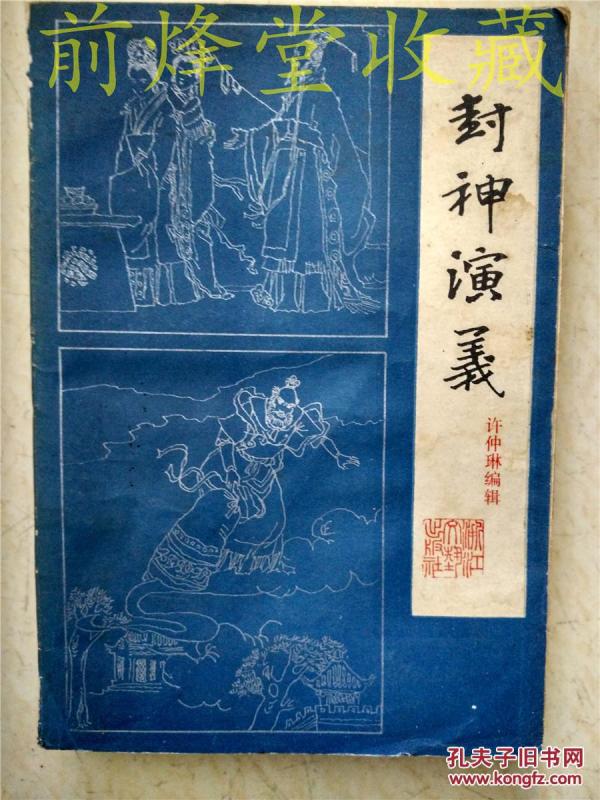 前烽堂收藏
封神演義
许仲琳编辑
浙江
文艺
出版社
孔夫子旧书网
www.kongfz.com